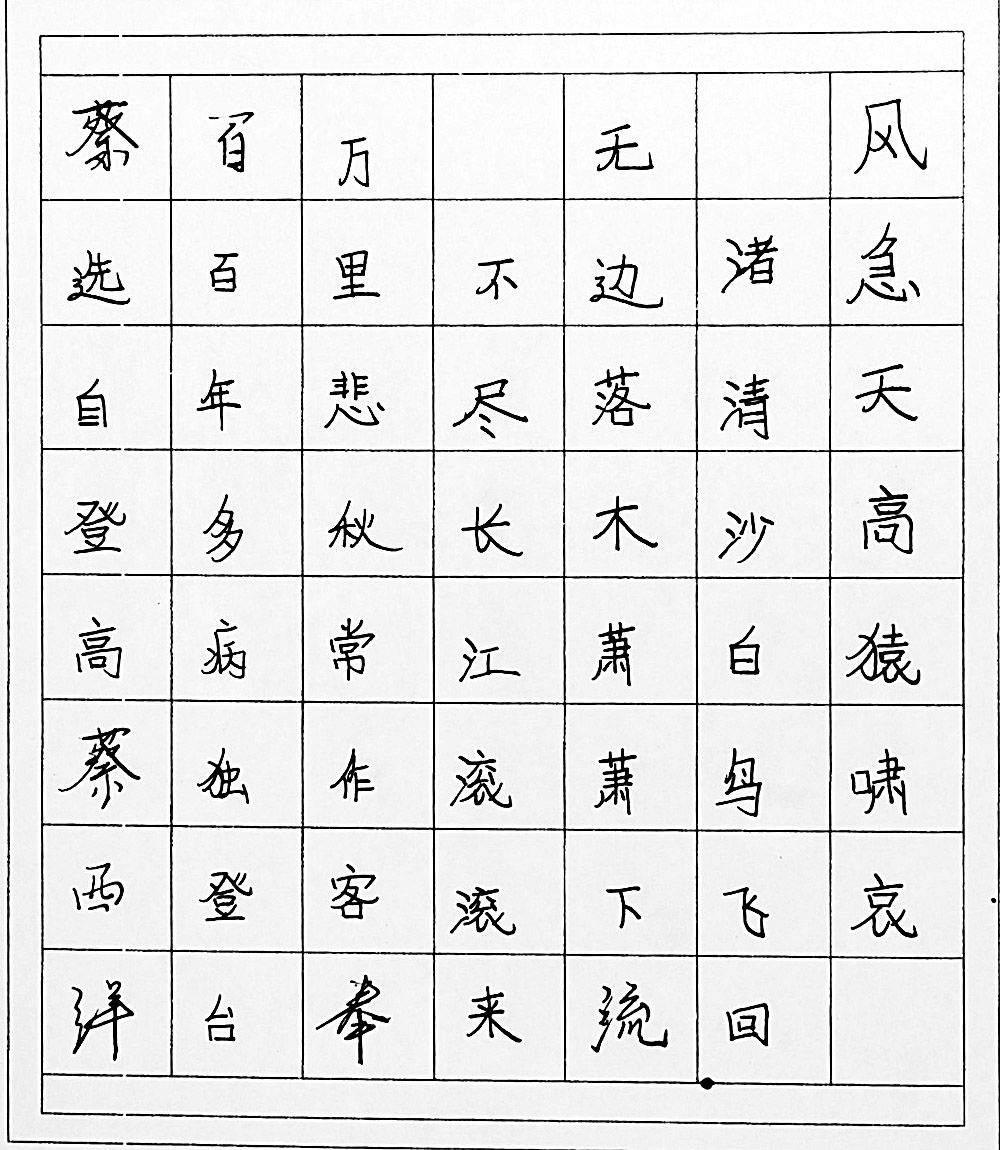 风急天高猿啸哀
渚清沙白鸟飞回
无边落木萧萧下流
不尽长江滚滚来
万里悲秋常作客奉
百年多病独登台
蔡选自登高蔡西洋